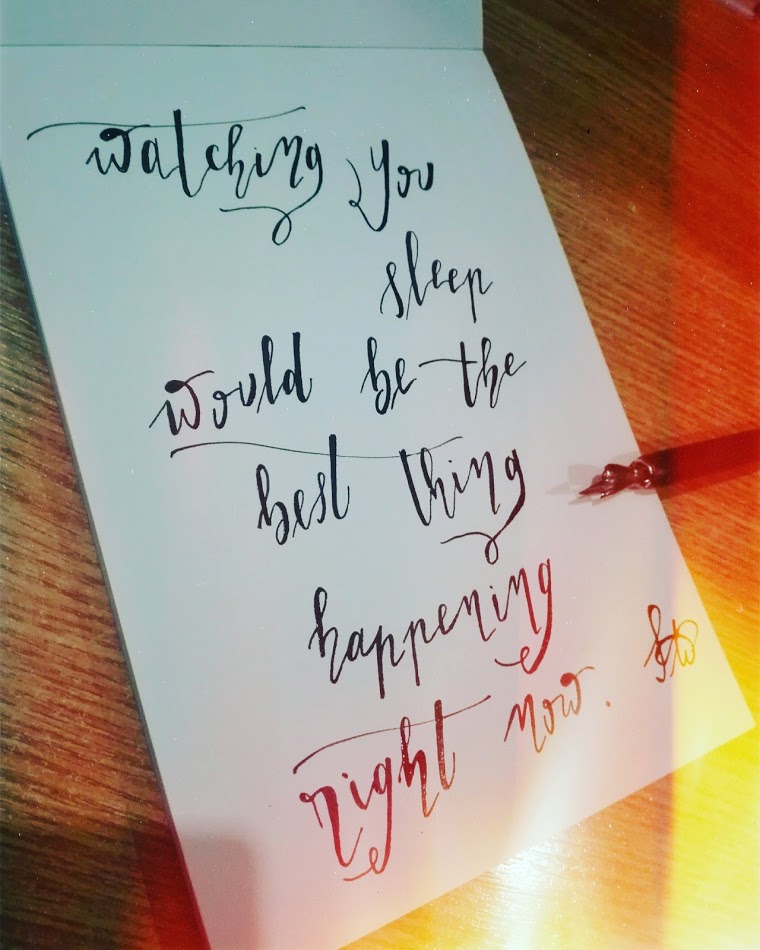 watching you
sleep
would be the
best thing
happening
right now.